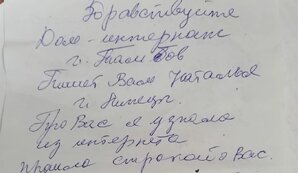 Здравствуйте
Дом-интернат
г. Тамбов
Пишет Вам Наталья
г. Липецк.
Про Вас я узнала
из интернета
о Вас.